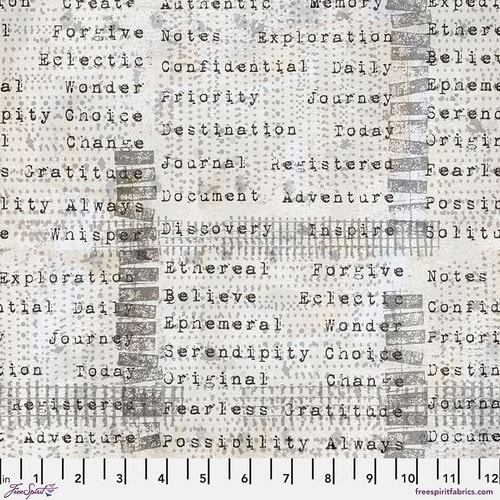 Create Authentic Memory Expedi
l Forgive Notes Exploration Ethere
Eclectic Confidential Daily Believ
al Wonder Priority Journey Epheme
pity Choice Destination Today Serend
l Change Journal Registered Origin
s Gratitude Document Adventure Fearle
lity Always Discovery Inspire Possib
e Whisper Ethereal Forgive Solitu
Exploration Believe Eclectic Notes
ntial Daily Ephemeral Wonder Confid
y Journey Serendipity Choice Priori
ion Today Original Change Destin
Registered Fearless Gratitude Journa
t Adventure Possibility Always Docume
in 1 2 3 4 5 6 7 8 9 10 11 12
FreeSpirit freespiritfabrics.com